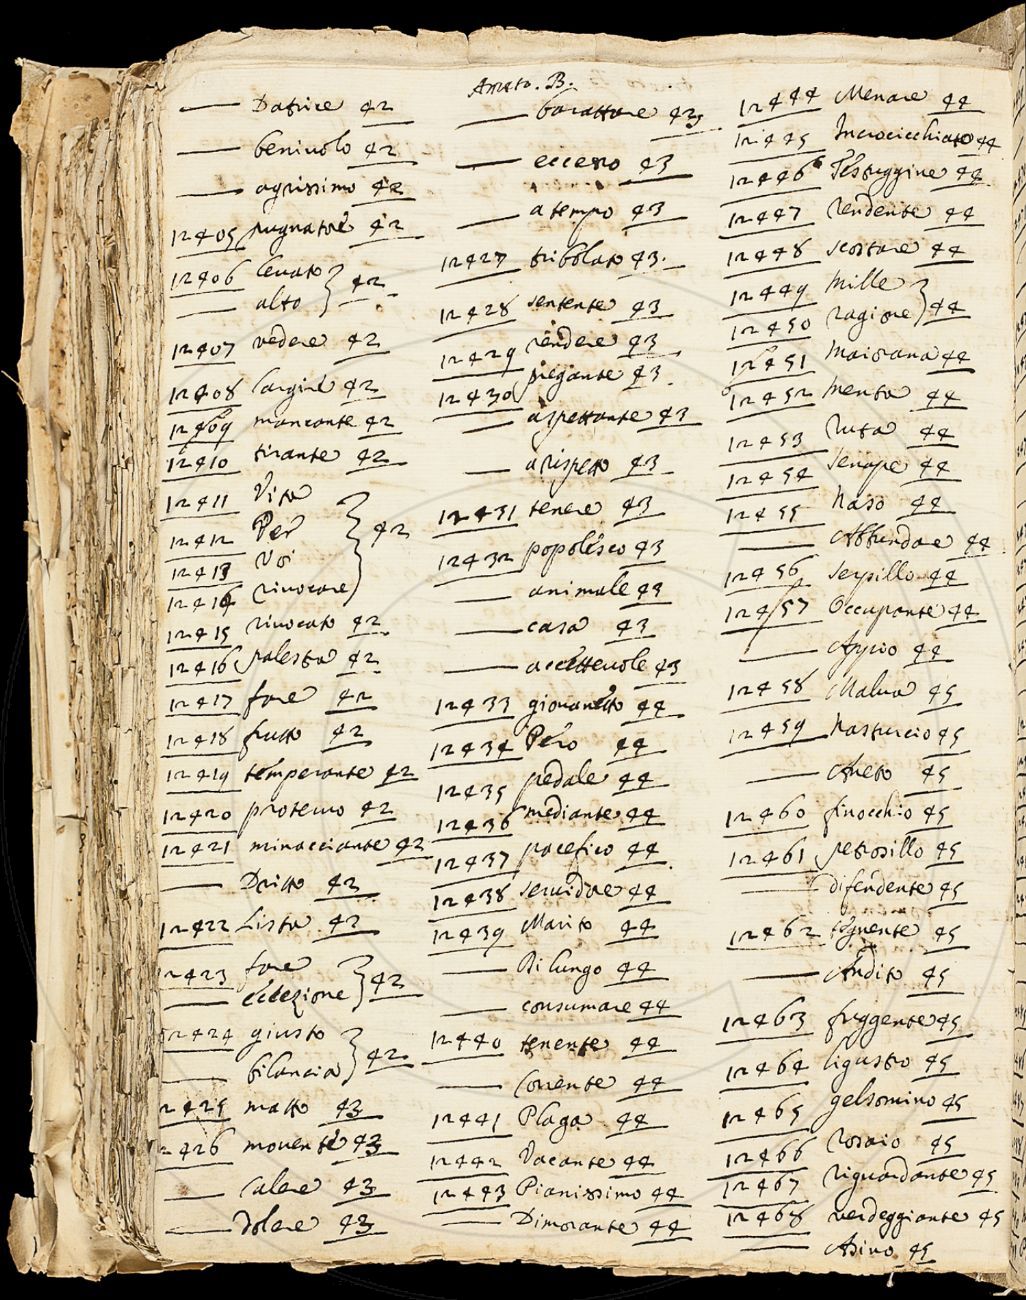 B.
benivolo 42
agrissimo 42
12405 pugnare 42
12406 levato
alto 42
12407 vedere 42
12408 largire 42
12409 mancante 42
12410 tirante 42
12411 Vita
12412 Per
12413 Voi
12414 rinovare 42
12415 rinovato 42
12416 palestra 42
12417 fare 42
12418 frutto 42
12419 temperante 42
12420 protervo 42
12421 minacciante 42
Dritto 42
12422 Lista 42
12423 fare
eccezione 42
12424 giusto
bilancia 42
12425 matto 43
12426 movente 43
calare 43
dolere 43
barattare 43
43
a tempo 43
12427 tribolato 43.
12428 sentente 43
12429 rendere 43
12430 piegante 43.
aspettante 43
a rispetto 43
12431 tenere 43
12432 popolesco 43
animale 43
casa 43
accettevole 43
12433 giovanetto 44
12434 Pero 44
12435 pedale 44
12436 mediante 44
12437 pacefico 44
12438 servidore 44
12439 Marito 44
Di lungo 44
consumare 44
12440 tenente 44
44
12441 Plaga 44
12442 Vacante 44
12443 Pianissimo 44
Dimorante 44
12444 Menare 44
12445 Incrocicchiato 44
12446 Testuggine 44
12447 rendente 44
12448 scostare 44
12449 Mille
12450 ragione 44
12451 maiorana 44
12452 menta 44
12453 ruta 44
12454 senape 44
12455 Naso 44
Abbundare 44
12456 serpillo 44
12457 Occupante 44
Appio 44
12458 Malva 45
12459 Nasturcio 45
Aneto 45
12460 finocchio 45
12461 petrosillo 45
difendente 45
12462 45
Andito 45
12463 fuggente 45
12464 ligustro 45
12465 gelsomino 45
12466 rosaio 45
12467 riguardante 45
12468 verdeggiante 45
Asino 45